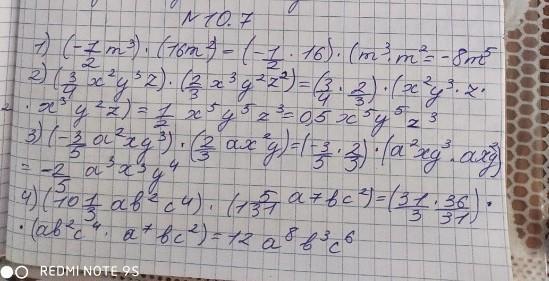 №10.7
1) (-1/2 m³) · (16m²) = (-1/2 · 16) · (m³ · m² = -8m⁵
2) (3/4 x²y³z) · (2/3 x³y²z²) = (3/4 · 2/3) · (x²y³ · z ·
· x³y²z) = 1/2 x⁵y⁵z³ = 0,5x⁵y⁵z³
3) (-3/5 a²xy³) · (2/3 ax²y) = (-3/5 · 2/3) · (a²xy³ · axy)
= -2/5 a³x³y⁴
4) (10 1/3 ab²c⁴) · (1 5/31 a⁷bc²) = (31/3 · 36/31) ·
· (ab²c⁴ · a⁷bc²) = 12a⁸b³c⁶
REDMI NOTE 9S